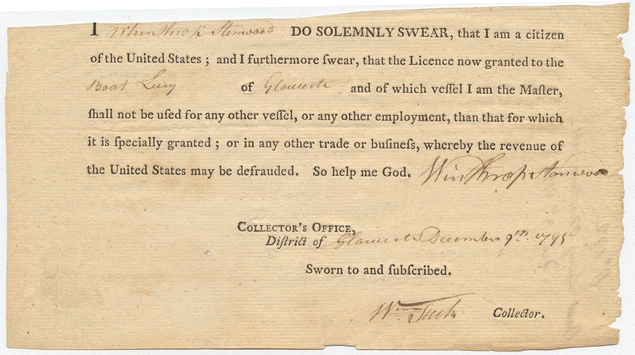 I Whinthrop Stanwood DO SOLEMNLY SWEAR, that I am a citizen
of the United States ; and I furthermore ſwear, that the Licence now granted to the
Boat Lucy of Gloucester and of which veſſel I am the Maſter,
ſhall not be uſed for any other veſſel, or any other employment, than that for which
it is ſpecially granted ; or in any other trade or buſineſs, whereby the revenue of
the United States may be defrauded. So help me God. Winthrop Stanwood
COLLECTOR'S OFFICE,
Diſtrict of Gloucester December 9th. 1795
Sworn to and ſubſcribed.
Wm Tuck Collector.